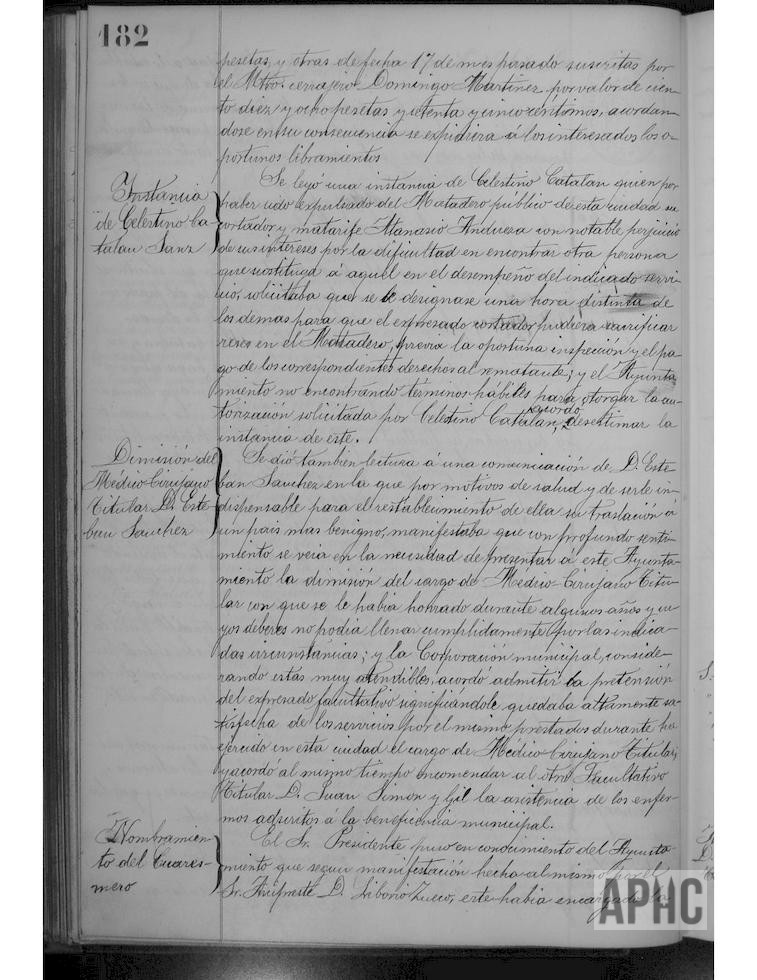 182
pesetas, y otras de fecha 17 de mes pasado suscritas por
el Mtro. cerrajero Domingo Martinez por valor de cien-
to diez y ocho pesetas y setenta y cinco céntimos, acordan-
dose en su consecuencia se expidiera á los interesados los o-
portunos libramientos
Instancia
de Celestino Ca-
talan Sanz
Se leyó una instancia de Celestino Catalan quien por
haber sido expulsado del Matadero público de esta ciudad su
cortador y matarife Atanasio Andueza con notable perjuicio
de sus intereses por la dificultad en encontrar otra persona
que sustituya á aquel en el desempeño del indicado servi-
cio, solicitaba que se le designase una hora distinta de
los demas para que el expresado cortador pudiera sacrificar
reses en el Matadero, previa la oportuna inspección y el pa-
go de los correspondientes derechos al rematante; y el Ayunta-
miento no encontrando términos hábiles para otorgar la au-
torización solicitada por Celestino Catalan, acordo desestimar la
instancia de este.
Dimisión del
Médico Cirujano
Titular D. Este-
ban Sanchez
Se dió tambien lectura á una comunicación de D. Este-
ban Sanchez en la que por motivos de salud y de serle in-
dispensable para el restablecimiento de ella su traslación á
un pais mas benigno, manifestaba que con profundo senti-
miento se veia en la necesidad de presentar á este Ayunta-
miento la dimisión del cargo de Médico-Cirujano Titu-
lar con que se le habia honrado durante algunos años y cu-
yos deberes no podia llenar cumplidamente por las indica-
das circunstancias; y la Corporación municipal, conside-
rando estas muy atendibles, acordó admitir la pretensión
del expresado facultativo significándole quedaba altamente sa-
tisfecha de los servicios por el mismo prestados durante ha
ejercido en esta ciudad el cargo de Médico Cirujano Titular;
y acordó al mismo tiempo encomendar al otro Facultativo
Titular D. Juan Simon y Gil la asistencia de los enfer-
mos adscritos á la beneficencia municipal.
Nombramien-
to del Cuares-
mero
El Sr. Presidente puso en conocimiento del Ayunta-
miento que segun manifestación hecha al mismo por el
Sr. Arcipreste D. Liborio Zueco, este habia encargado
APHC